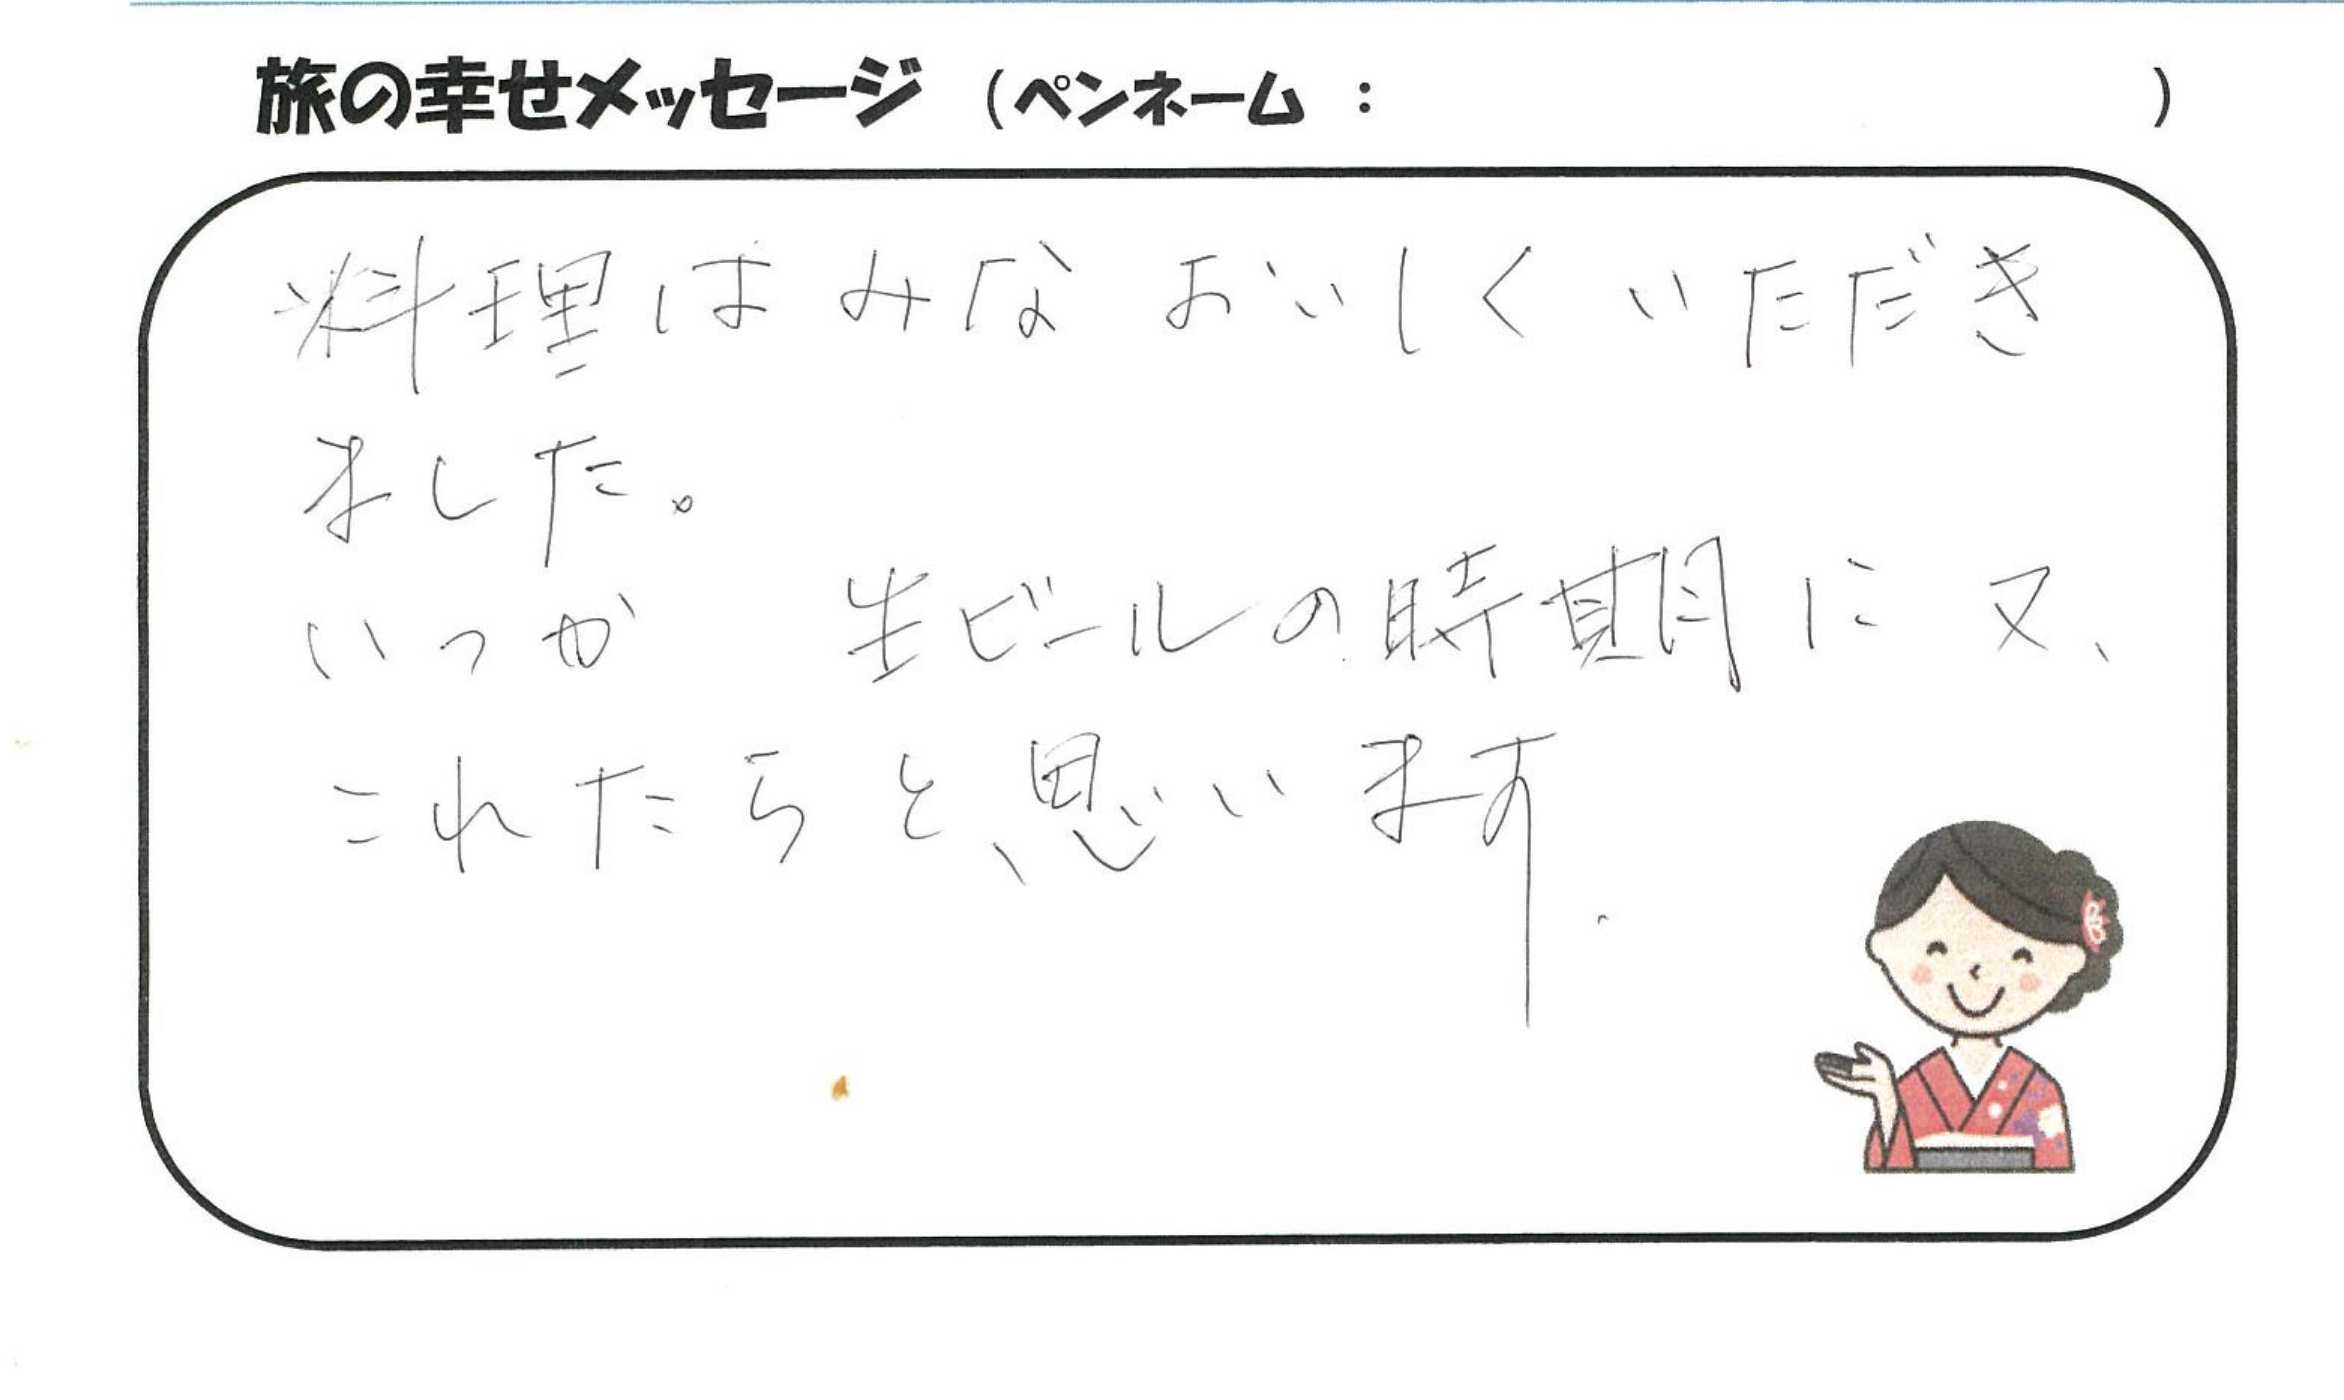 旅の幸せメッセージ (ペンネーム : )
料理はみなおいしくいただき
ました。
いつか 生ビールの時期に又、
これたらと、思います.